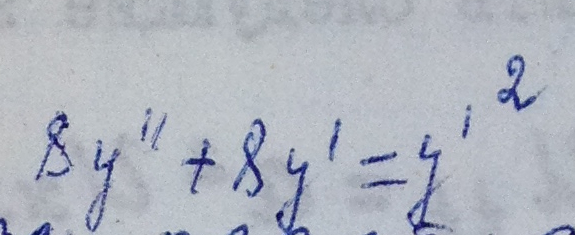 8y'' + 8y' = y'²